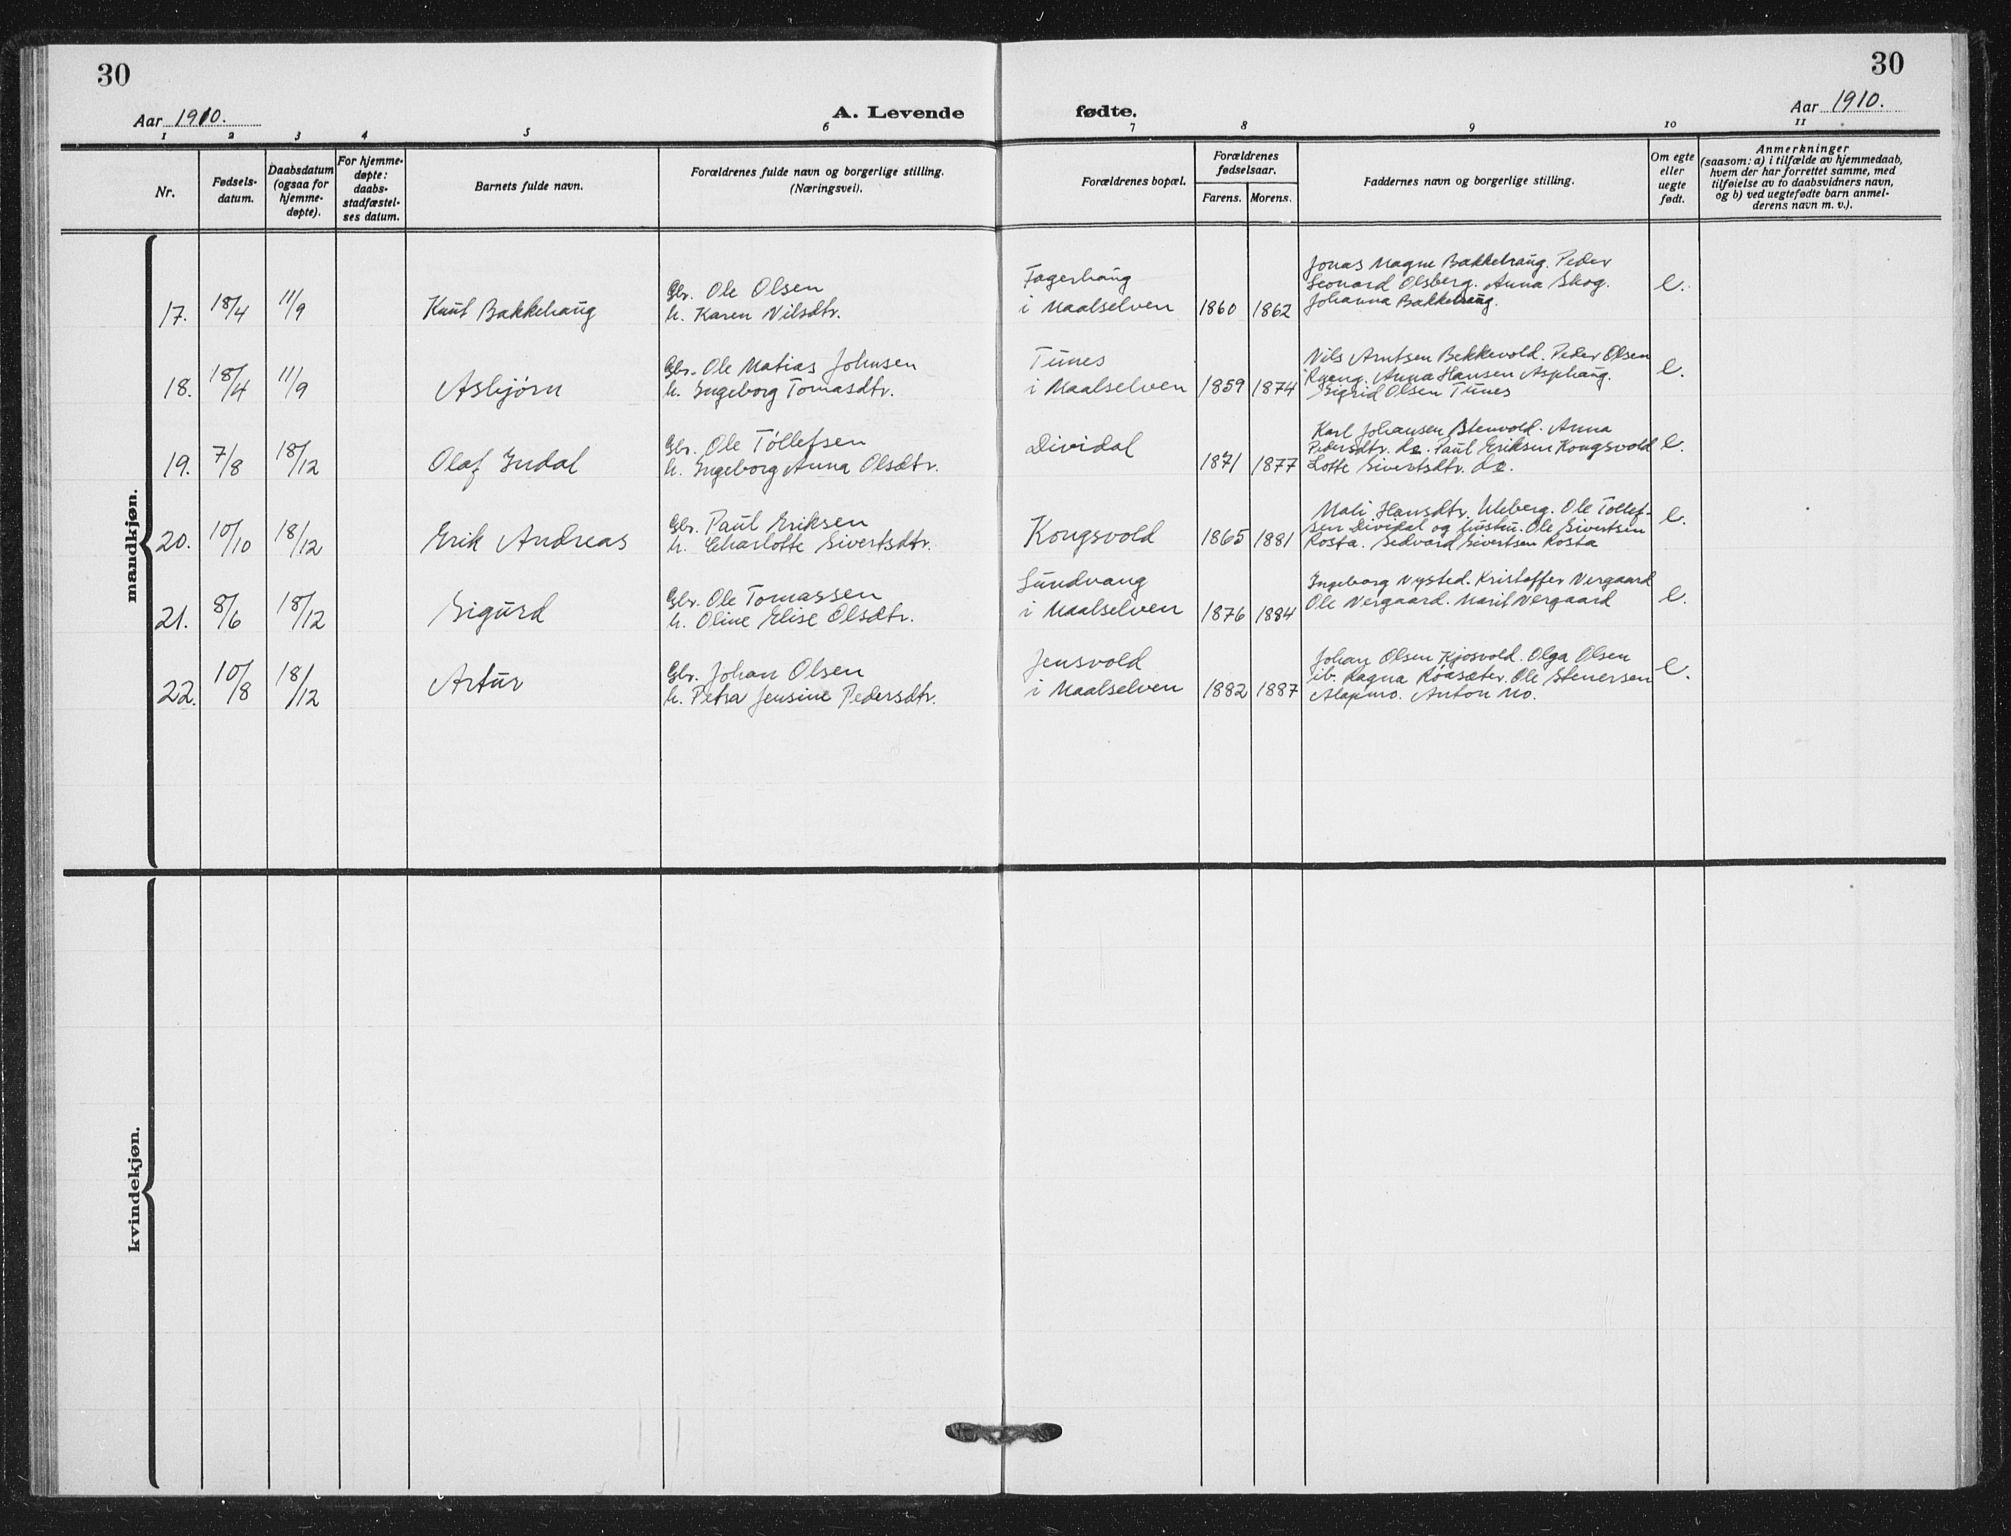 30
30
Aar 1910.
A. Levende
fødte.
Aar 1910.
1 2 3 4 5 6 7 8 9 10 11
Nr.
Fødsels-
datum.
Daabsdatum
(ogsaa for
hjemme-
døpte).
For hjemme-
døpte:
daabs-
stadfæstel-
ses datum.
Barnets fulde navn.
Forældrenes fulde navn og borgerlige stilling.
(Næringsvei).
Forældrenes bopæl.
Forældrenes
fødselsaar.
Farens. Morens.
Faddernes navn og borgerlige stilling.
Om egte
eller
uegte
født.
Anmerkninger
(saasom: a) i tilfælde av hjemmedaab,
hvem der har forrettet samme, med
tilføielse av to daabsvidners navn,
og b) ved uegtefødte barn anmel-
derens navn m. v.).
mandkjøn.
17. 18/4 11/9 Knut Bakkehaug
Gbr. Ole Olsen
h. Karen Nilsdtr.
Fagerhaug
i Maalselven
1860 1862
Jonas Magne Bakkehaug. Peder
Leonard Olsberg. Anna Skog.
Johanna Bakkehaug.
e.
18. 18/4 11/9 Asbjørn
Gbr. Ole Matias Johnsen
h. Ingeborg Tomasdtr.
Tunes
i Maalselven
1859 1874
Nils Arntsen Bekkevold. Peder Olsen
Ryeng. Anna Hansen Asphaug.
Sigrid Olsen Tunes
e.
19. 7/8 18/12 Olaf Indal
Gbr. Ole Tollefsen
h. Ingeborg Anna Olsdtr.
Dividal
1871 1877
Karl Johansen Stenvold. Anna
Pedersdtr. do. Paul Eriksen Kongsvold
Lotte Sivertsdtr. do.
e.
20. 10/10 18/12 Erik Andreas
Gbr. Paul Eriksen
h. Charlotte Sivertsdtr.
Kongsvold
1865 1881
Mali Hansdtr. Uleberg. Ole Tollef-
sen Dividal og hustru. Ole Sivertsen
Rosta. Sedvard Sivertsen Rosta
e.
21. 8/6 18/12 Sigurd
Gbr. Ole Tomassen
h. Oline Elise Olsdtr.
Sundvang
i Maalselven
1876 1884
Ingeborg Nysted. Kristoffer Nergaard
Ole Nergaard. Marit Nergaard
e.
22. 10/8 18/12 Artur
Gbr. Johan Olsen
h. Petra Jensine Pedersdtr.
Jensvold
i Maalselven
1882 1887
Johan Olsen Kjosvold. Olga Olsen
ib. Ragna Roasæter. Ole Stenersen
Alapmo. Anton Mo.
e.
kvindekjøn.